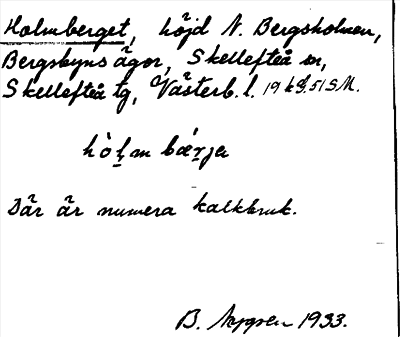 Holmberget, höjd N. Bergsholmen,
Bergsbyns ägor, Skellefteå sn,
Skellefteå tg, Västerb. l.
hò̀ḷm bæ̀rjeṭ
Där är numera kalkbruk.
B. Nygren 1933.